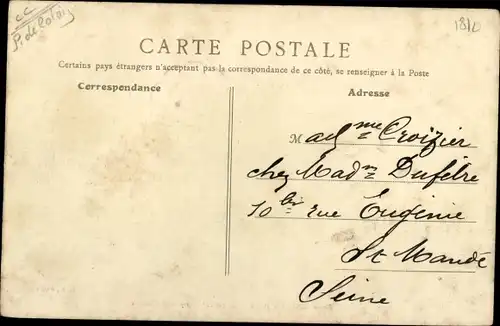 CC
P. de
18/0
CARTE POSTALE
Certains pays étrangers n'acceptant pas la correspondance de ce côté, se renseigner à la Poste
Correspondance
Adresse
Mad me Croizier
chez Mad m Dufêtre
10 bis rue Eugénie
St Mandé
Seine